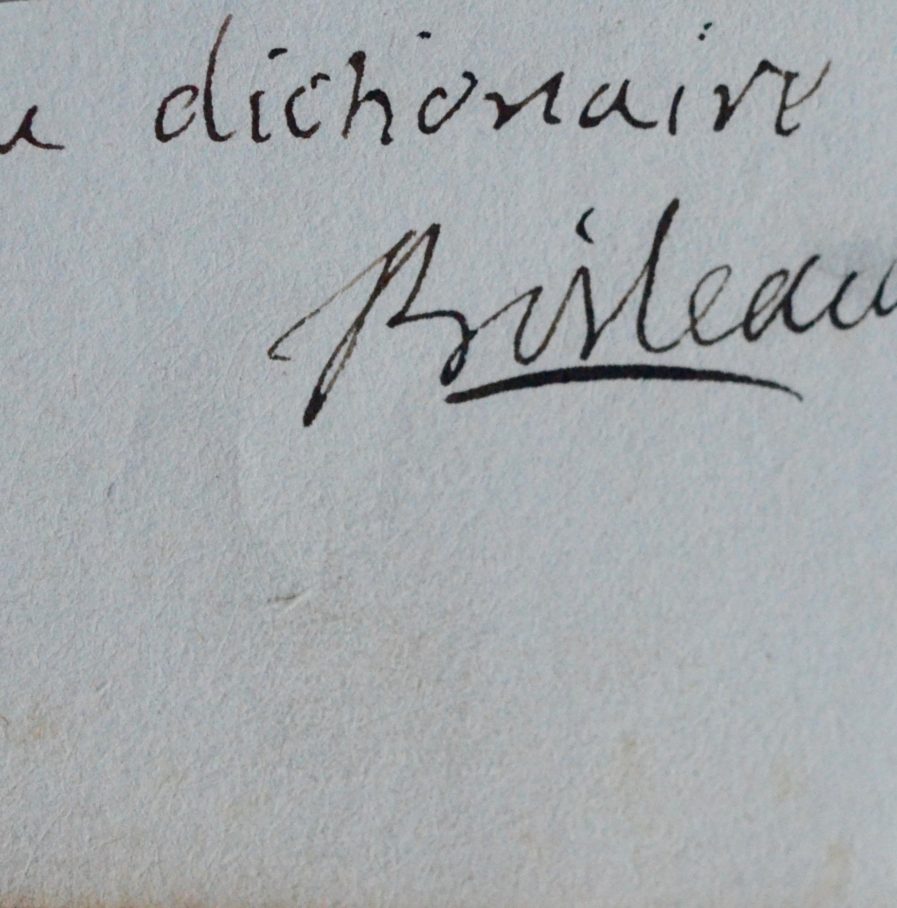 u dictionaire
Boisleau